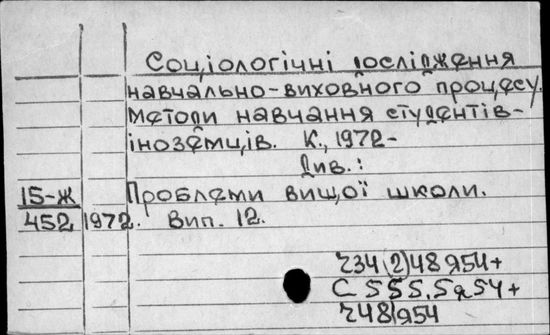 Соціологічні дослідження
навчально-виховного процесу.
Методи навчання студентів-
іноземців. К., 1972-
Див.:
15-Ж Проблеми вищої школи.
452 1972. Вип. 12.
Ч34(2)48я54+
С555.5я54+
Ч48я54